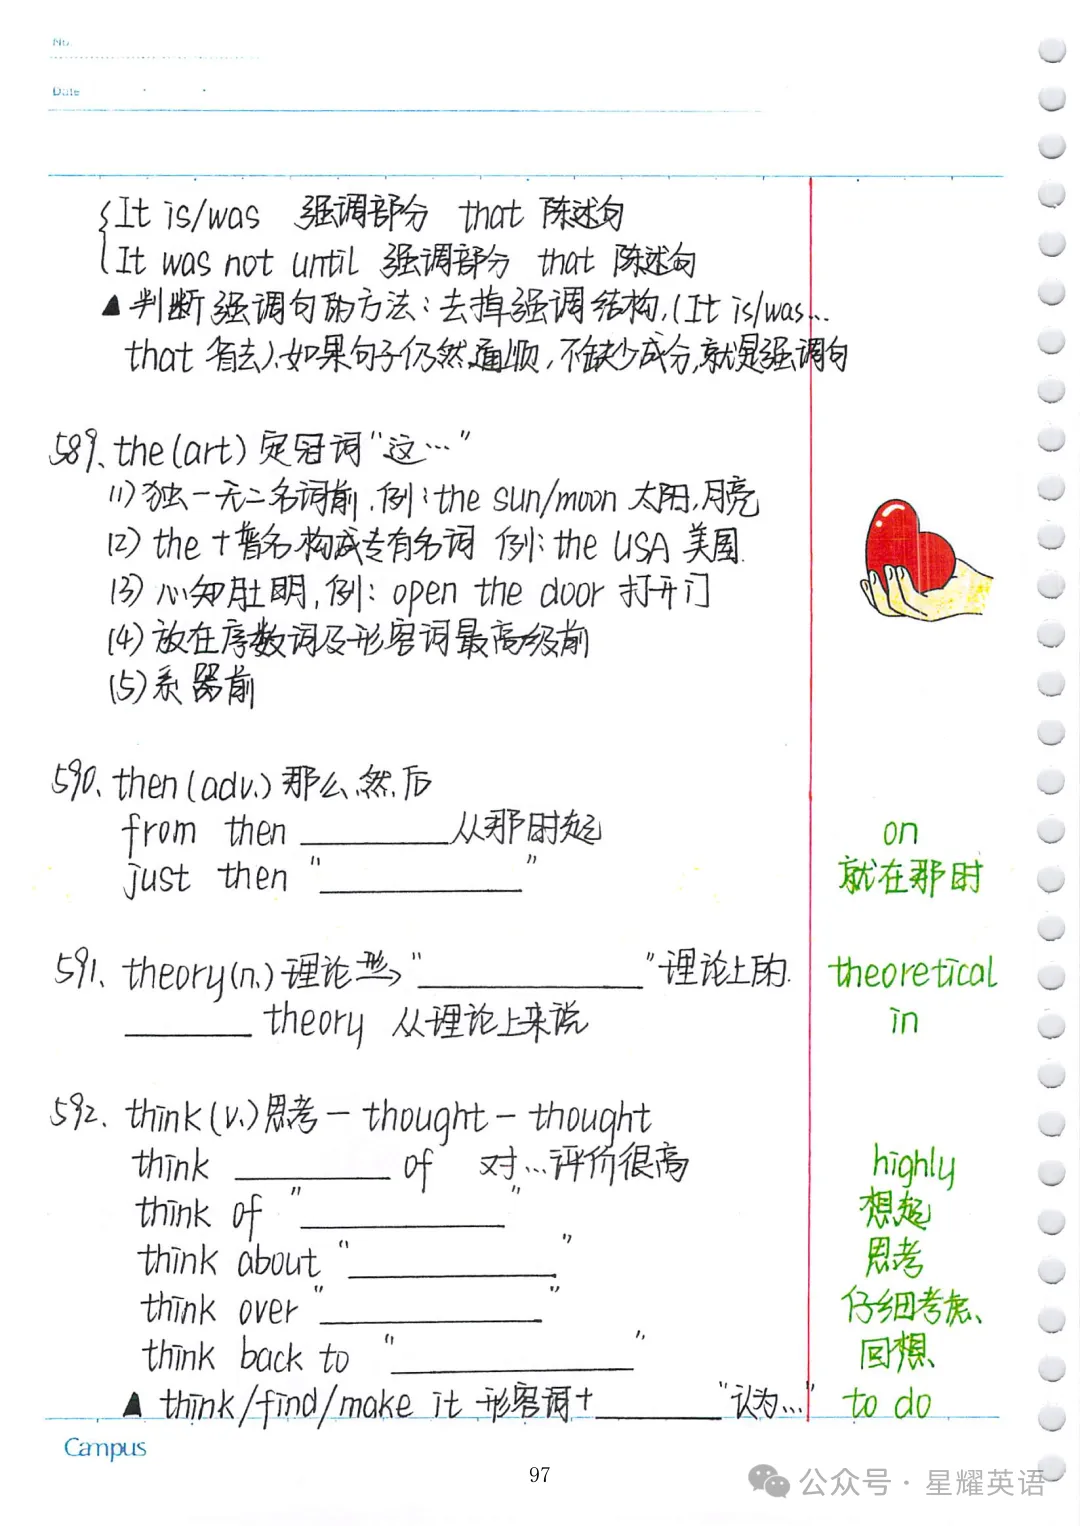 No.
Date
It is/was 强调部分 that 陈述句
It was not until 强调部分 that 陈述句
▲判断强调句的方法：去掉强调结构,(It is/was...
that 省去).如果句子仍然通顺,不缺少成分,就是强调句
589、the(art)定冠词"这…"
(1)独一无二名词前.例:the sun/moon 太阳,月亮
(2)the+普名构成专有名词 例:the USA 美国.
(3)心知肚明,例:open the door 打开门
(4)放在序数词及形容词最高级前
(5)乐器前
590、then(adv.)那么、然后
from then ________从那时起 on
just then "________" 就在那时
591、theory(n.)理论 形→"________"理论上的. theoretical
________ theory 从理论上来说 in
592、think(v.)思考-thought-thought
think ________ of 对…评价很高 highly
think of "________" 想起
think about "________" 思考
think over "________" 仔细考虑、
think back to "________" 回想、
▲ think/find/make it 形容词+________"认为…" to do
Campus
97
公众号·星耀英语